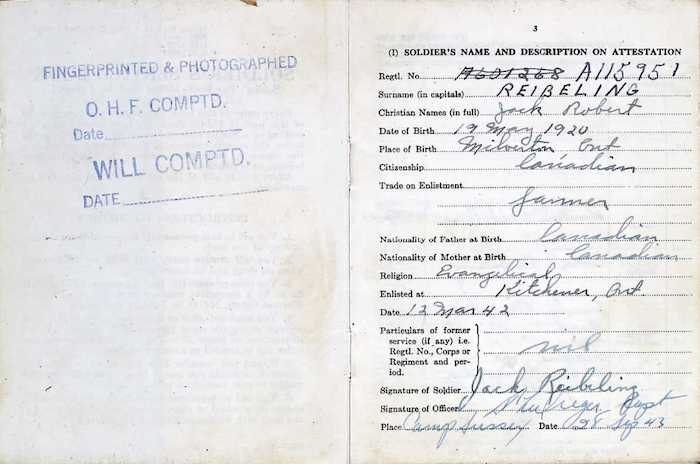 FINGERPRINTED & PHOTOGRAPHED
O. H. F. COMPTD.
Date
WILL COMPTD.
DATE
3
(I) SOLDIER'S NAME AND DESCRIPTION ON ATTESTATION
Regtl. No. A601268 A115951
Surname (in capitals) REIBELING
Christian Names (in full) Jack Robert
Date of Birth 19 May 1920
Place of Birth Milverton Ont
Citizenship Canadian
Trade on Enlistment
farmer
Nationality of Father at Birth Canadian
Nationality of Mother at Birth Canadian
Religion Evangelical
Enlisted at Kitchener, Ont
Date 12 Mar 42
Particulars of former
service (if any) i.e.
Regtl. No., Corps or
Regiment and per-
iod.
nil
Signature of Soldier Jack Reibeling
Signature of Officer Capt
Place Camp Sussex Date 28 Sep 43